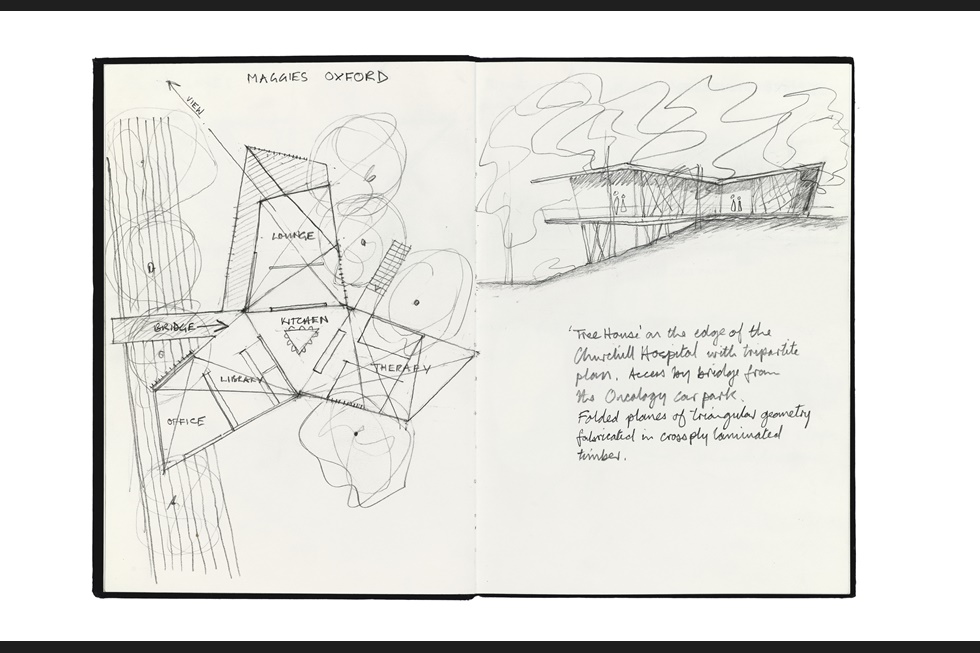 MAGGIES OXFORD
VIEW
LOUNGE
BRIDGE
KITCHEN
LIBRARY
THERAPY
OFFICE
'Tree House' on the edge of the
Churchill Hospital with tripartite
plan. Access by bridge from
the Oncology car park.
Folded planes of triangular geometry
fabricated in crossply laminated
timber.